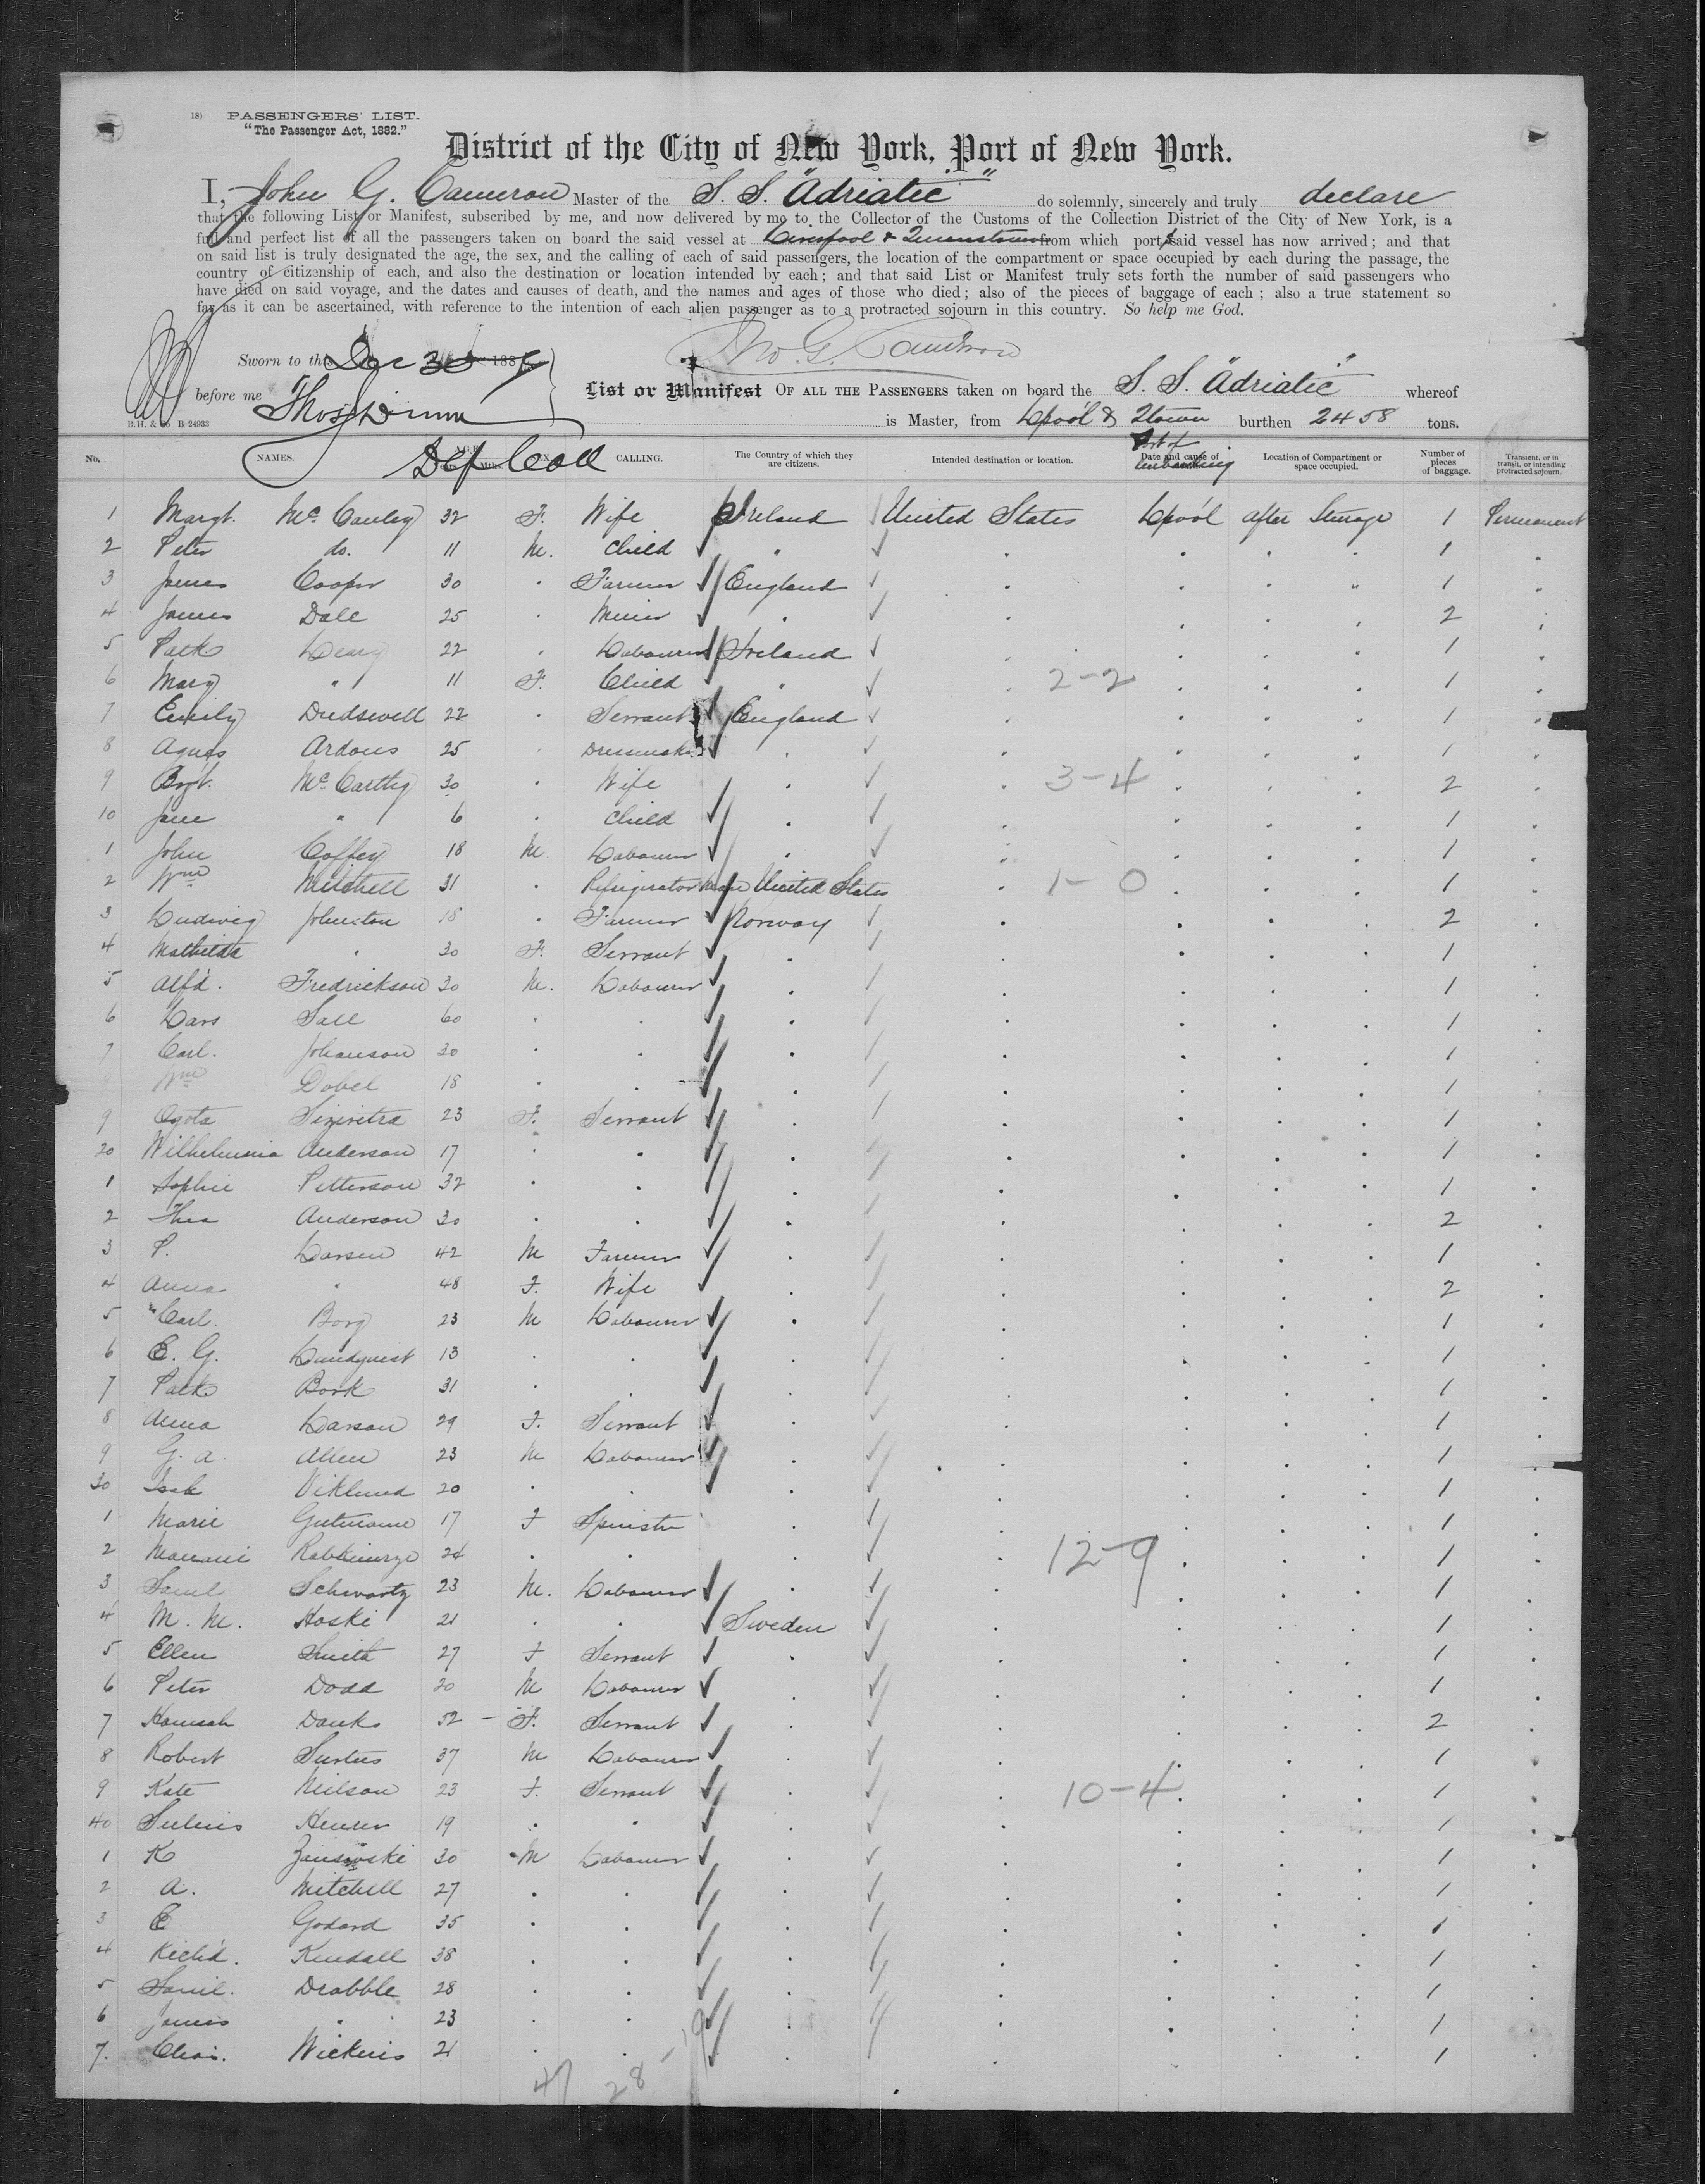 18) PASSENGERS' LIST.
"The Passenger Act, 1882."
District of the City of New York, Port of New York.
I, John G. Cameron Master of the S. S. "Adriatic" do solemnly, sincerely and truly declare
that the following List or Manifest, subscribed by me, and now delivered by me to the Collector of the Customs of the Collection District of the City of New York, is a
full and perfect list of all the passengers taken on board the said vessel at Liverpool & Queenstown from which port said vessel has now arrived; and that
on said list is truly designated the age, the sex, and the calling of each of said passengers, the location of the compartment or space occupied by each during the passage, the
country of citizenship of each, and also the destination or location intended by each; and that said List or Manifest truly sets forth the number of said passengers who
have died on said voyage, and the dates and causes of death, and the names and ages of those who died; also of the pieces of baggage of each; also a true statement so
far as it can be ascertained, with reference to the intention of each alien passenger as to a protracted sojourn in this country. So help me God.
Jno. G. Cameron
Sworn to this Dec 30 188
before me Thos Dunn
List or Manifest OF ALL THE PASSENGERS taken on board the S. S. "Adriatic" whereof
B.H. & Co B 24933
is Master, from Lpool & Qtown burthen 2458 tons.
No. NAMES. Dep Coll CALLING. The Country of which they are citizens. Intended destination or location. Date and cause of Port of Embarking Location of Compartment or space occupied. Number of pieces of baggage. Transient, or in transit, or intending protracted sojourn.
1 Margt. McCauley 32 F. Wife Ireland United States Lpool after Steerage 1 Permanent
2 Peter do. 11 M. Child " 1
3 James Cooper 30 Farmer England 1
4 James Dale 25 Miner 2
5 Patk Leary 22 Labourer Ireland 1
6 Mary " 11 F. Child " 2-2 1
7 Emily Dudswell 22 Servant England 1
8 Agnes Ardous 25 Dressmakr 1
9 Bgt. McCarthy 30 Wife 3-4 2
10 Jane " 6 Child 1
1 John Coffey 18 M. Labourer 1
2 Wm Mitchell 31 Refrigerator United States 1-0 1
3 Ludwig Johnston 18 Farmer Norway 2
4 Mathilda 30 F. Servant 1
5 Alfd. Fredrickson 30 M. Labourer 1
6 Lars Sall 60 1
7 Carl. Johanson 30 1
Wm Dobel 18 1
9 23 F. Servant 1
20 Wilhelmina Anderson 17 1
1 Sophie Petterson 32 1
2 Thea Anderson 30 2
3 P. Larsen 42 M Farmer 1
4 Anna " 48 F. Wife 2
5 Carl. Borg 23 M Labourer 1
6 E. G. Lundquist 13 1
7 Patk Bork 31 1
8 Anna Larson 29 F. Servant 1
9 G. A. Allen 23 M Labourer 1
30 Isak Viklund 20 1
1 Marie Gutmann 17 F Spinster 1
2 24 12-9 1
3 Saml Schwartz 23 M. Labourer 1
4 M. M. Hoski 21 Sweden 1
5 Ellen Smith 27 F Servant 1
6 Peter Dodd 20 M Labourer 1
7 Hannah Danks 52 F. Servant 2
8 Robert Surtees 37 M Labourer 1
9 Kate Neilson 23 F. Servant 10-4 1
40 19 1
1 K 30 M Labourer 1
2 A. Mitchell 27 1
3 E Godard 35 1
4 Richd. Kendall 38 1
5 Saml. Drabble 28 1
6 James " 23 1
7. Chas. Wickens 21 1
47 28-19